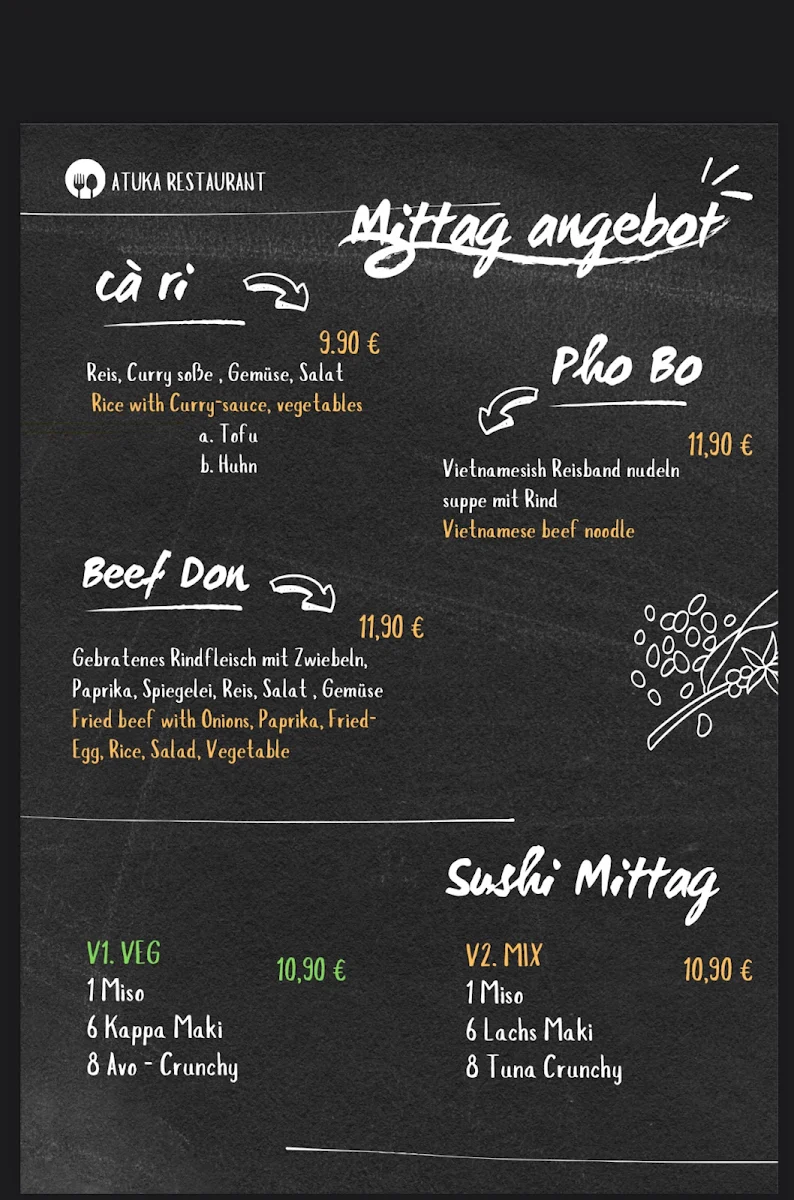 ATUKA RESTAURANT
Mittag angebot
cà ri
9.90 €
Reis, Curry soße , Gemüse, Salat
Rice with Curry-sauce, vegetables
a. Tofu
b. Huhn
Pho Bo
11,90 €
Vietnamesish Reisband nudeln
suppe mit Rind
Vietnamese beef noodle
Beef Don
11,90 €
Gebratenes Rindfleisch mit Zwiebeln,
Paprika, Spiegelei, Reis, Salat , Gemüse
Fried beef with Onions, Paprika, Fried-
Egg, Rice, Salad, Vegetable
Sushi Mittag
V1. VEG
10,90 €
1 Miso
6 Kappa Maki
8 Avo - Crunchy
V2. MIX
10,90 €
1 Miso
6 Lachs Maki
8 Tuna Crunchy